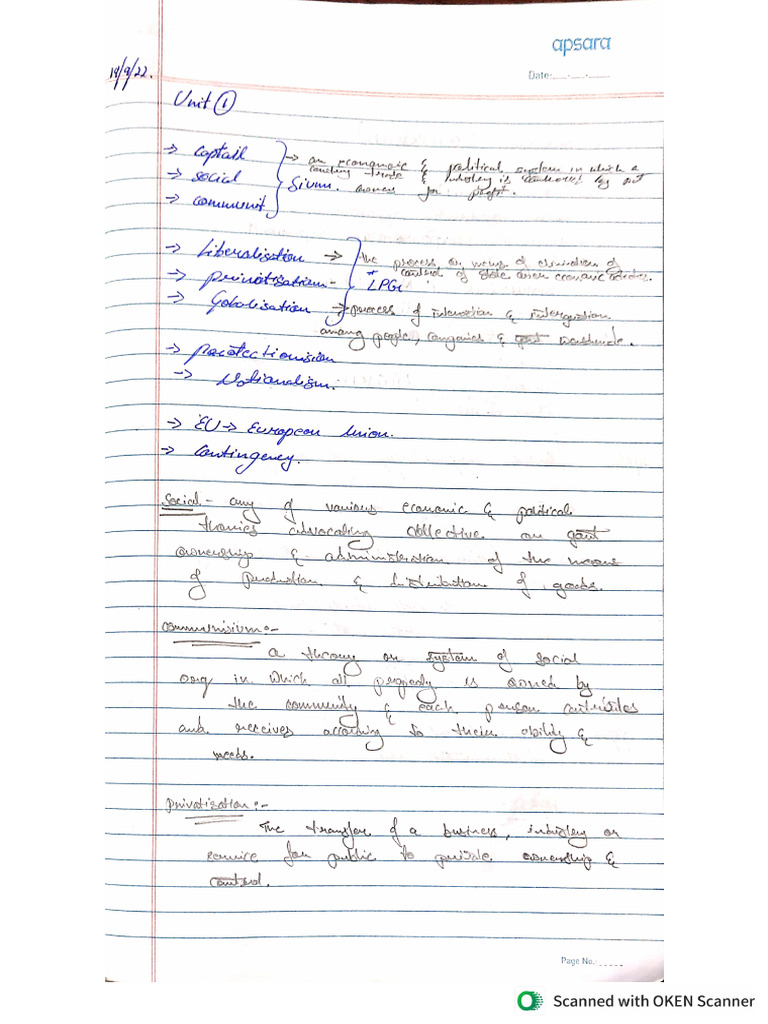 apsara
19/9/22.
Date:
Unit ①
→ Captail → an economic & political system in which a
country trade & is controlled by
→ Social Sium. owners for profit.
→ communit
→ Liberalisation → the process or of elimination of
control of State over economic
→ privatisation - * LPG
→ Globalisation → process of interaction & integration
among people, companies & govt worldwide.
→ protectionision
→ Nationalism.
→ EU → European Union.
→ Contingency.
Social - any of various economic & political
theories advocating collective or govt
ownership & administration of the means
of production & distribution of goods.
Communisium :-
a theory or system of social
org in which all property is owned by
the community & each person contributes
and receives according to their ability &
needs.
Privatisation :-
The transfer of a business, industry or
service for public to private ownership &
control.
Page No.:
Scanned with OKEN Scanner